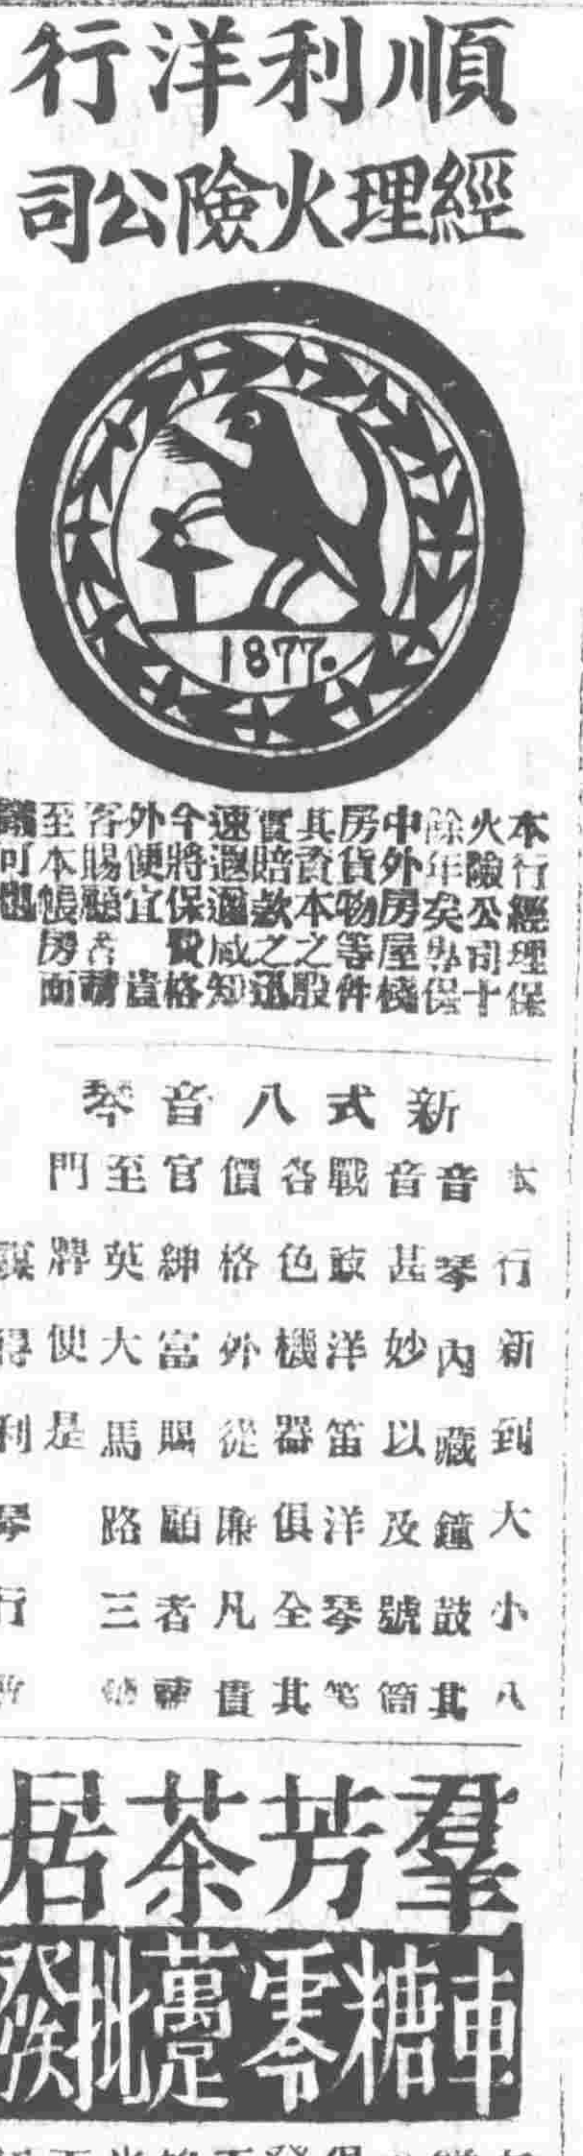 順利洋行
經理火險公司
1877.
本行經理保
火險公司十
餘年矣專保
中外房屋棧
房貨物等件
其資本之殷
實賠款之迅
速遐邇咸知
今將保費格
外便宜 貴
客賜顧者請
至本帳房面
議可也
新式八音琴
本行新到大小八
音琴內藏鐘鼓其
音甚妙以及號筒
戰鼓洋笛洋琴
各色機器俱全其
價格外從廉凡貴
官紳富賜顧者請
至英大馬路三
門牌便是
謀得利琴行
羣芳茶居
車糖零躉批發